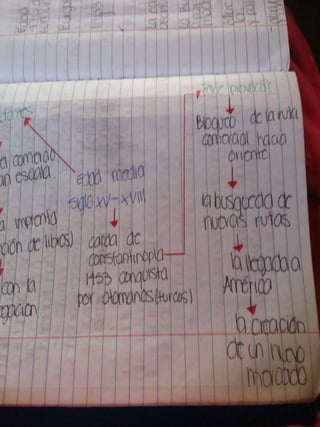 comercio
an escala
imprenta
ción de libros)
con la
gación
Edad media
siglo XV-XVIII
caida de
constantinopla
1453 conquista
por otomanos (turcos)
Bloqueo de la ruta
comercial hacia
oriente
la busqueda de
nuevas rutas
la llegada a
América
la creación
de un nuevo
mercado